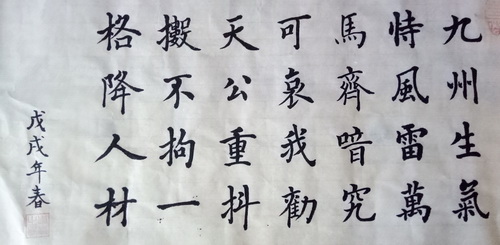 九州生氣
恃風雷萬
馬齊喑究
可哀我勸
天公重抖
擻不拘一
格降人材
戊戌年春